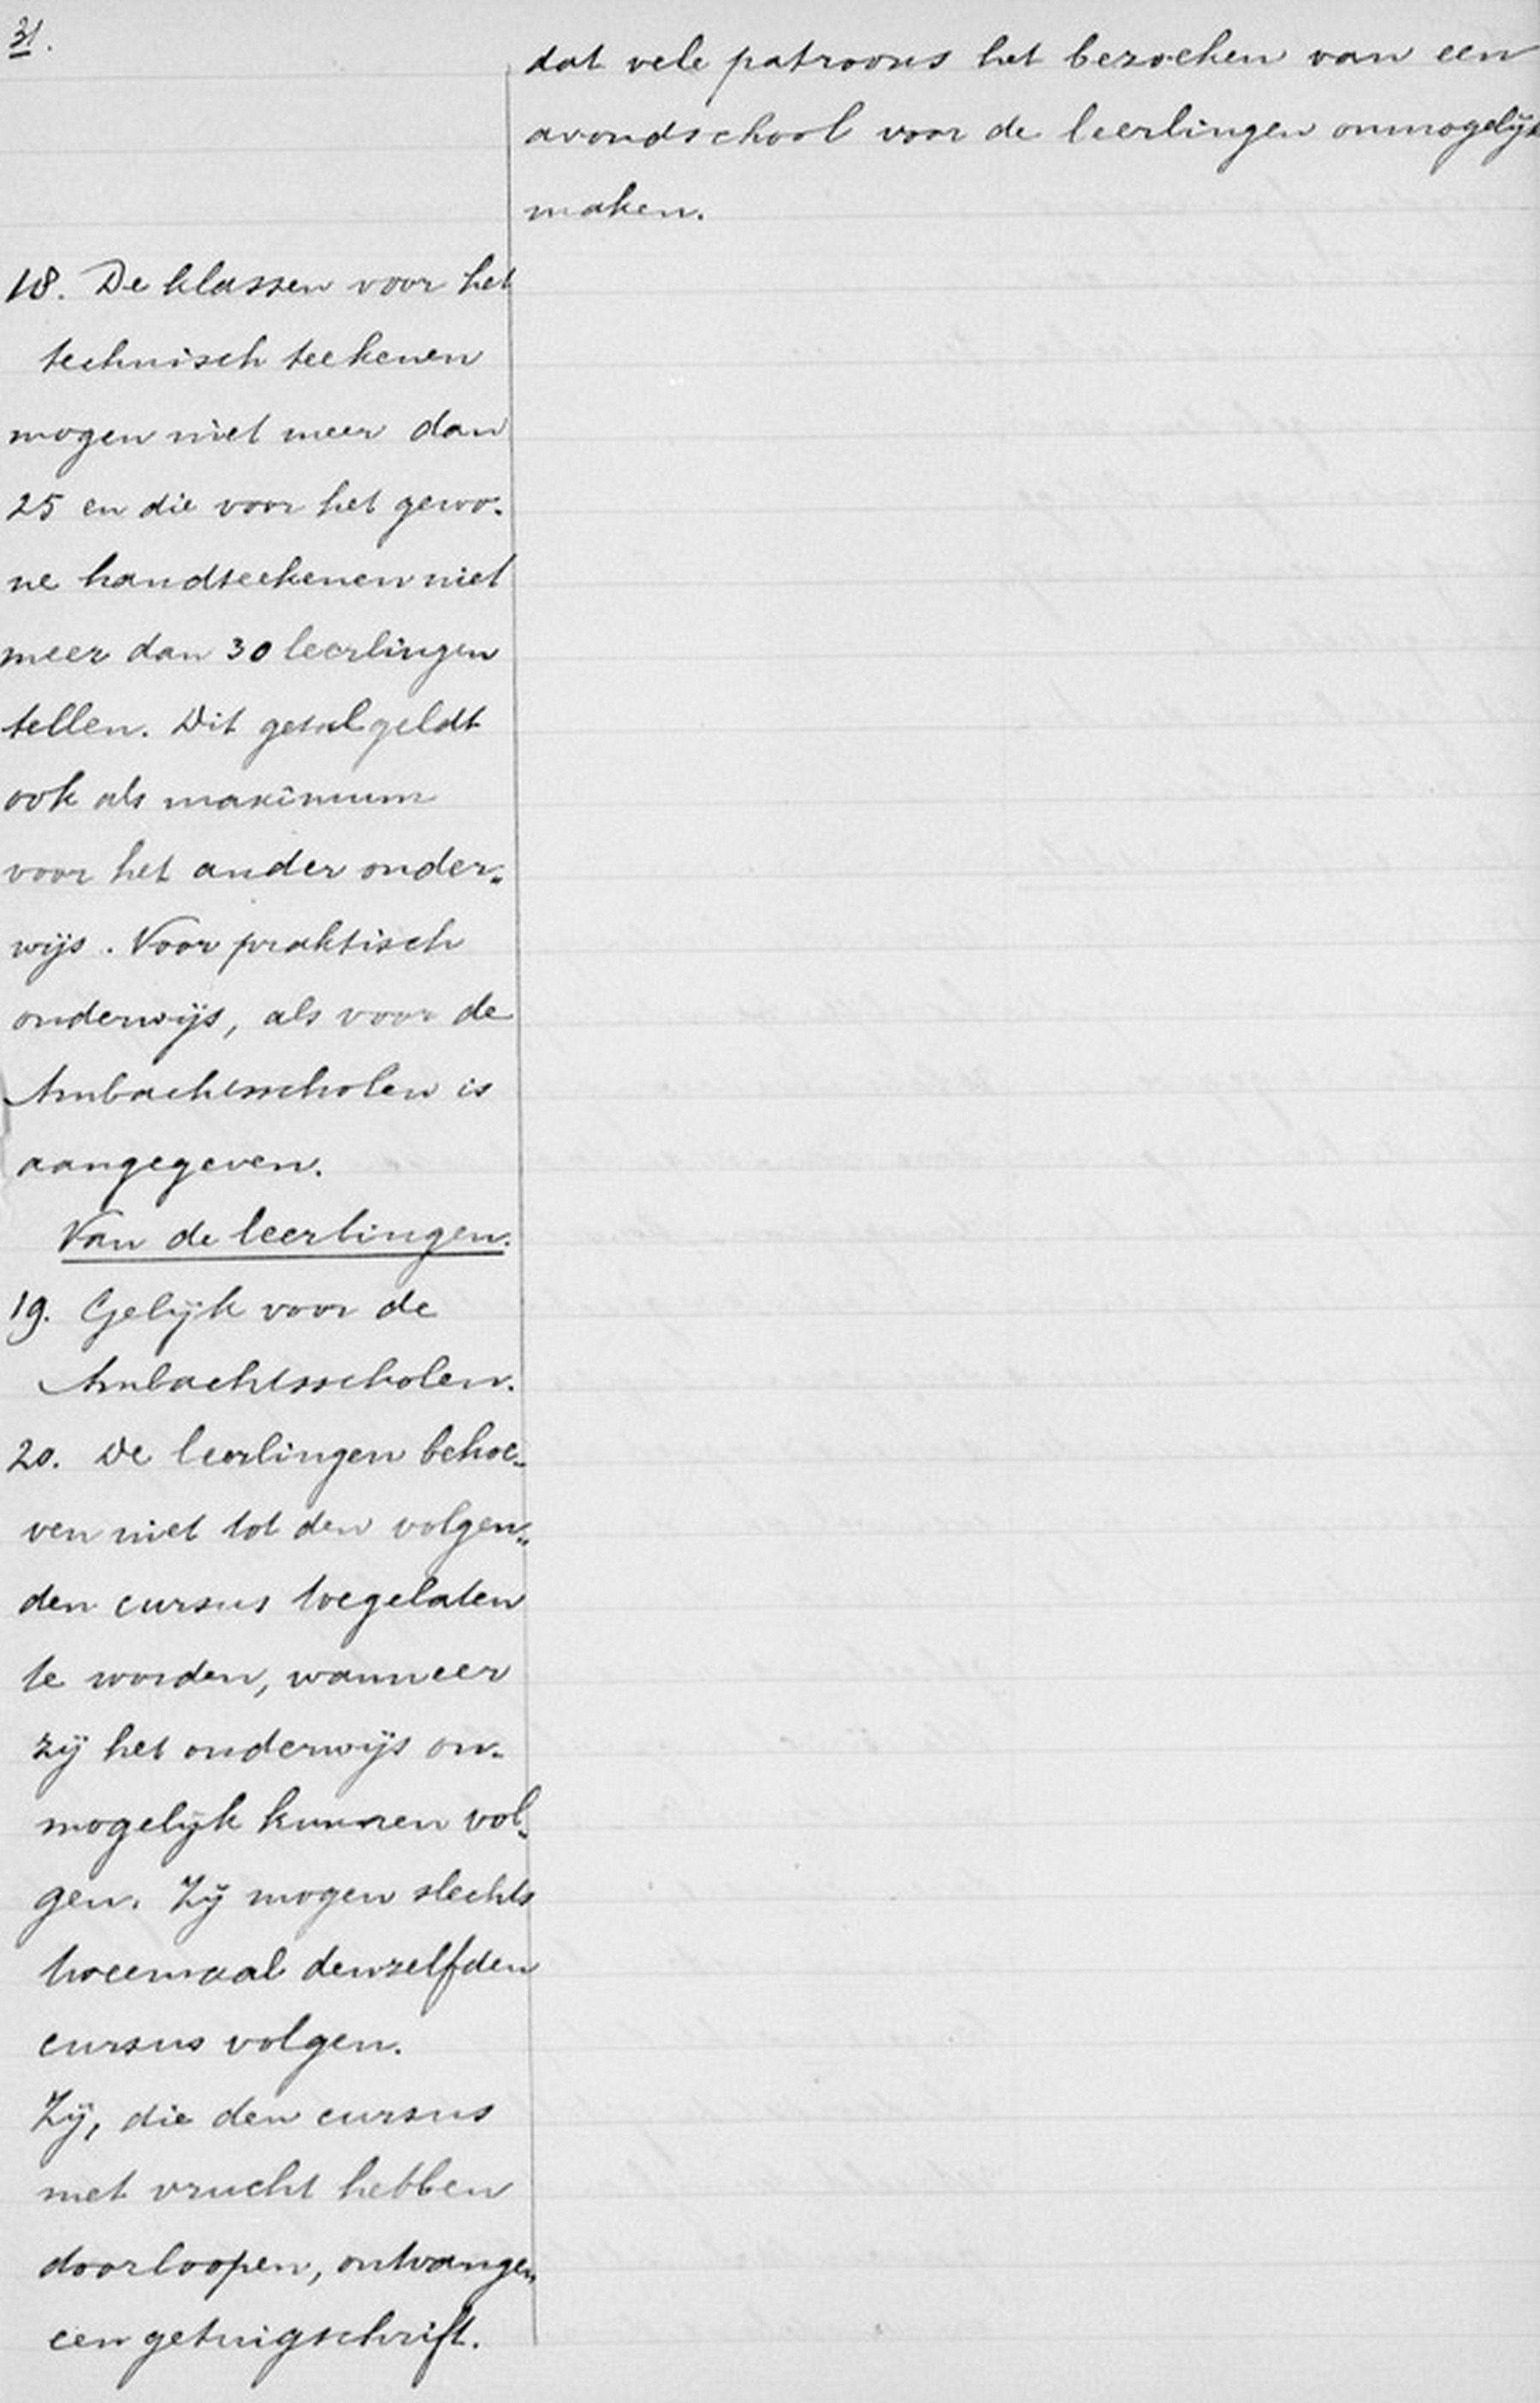 31.
dat vele patroons het bezoeken van een
avondschool voor de leerlingen onmogelijk
maken.
18. De klassen voor het
technisch teekenen
mogen niet meer dan
25 en die voor het gewo-
ne handteekenen niet
meer dan 30 leerlingen
tellen. Dit getal geldt
ook als maximum
voor het ander onder-
wijs. Voor praktisch
onderwijs, als voor de
Ambachtsscholen is
aangegeven.
Van de leerlingen.
19. Gelijk voor de
Ambachtsscholen.
20. De leerlingen behoe-
ven niet tot den volgen-
den cursus toegelaten
te worden, wanneer
zij het onderwijs on-
mogelijk kunnen vol-
gen. Zij mogen slechts
tweemaal denzelfden
cursus volgen.
Zij, die den cursus
met vrucht hebben
doorloopen, ontvangen
een getuigschrift.